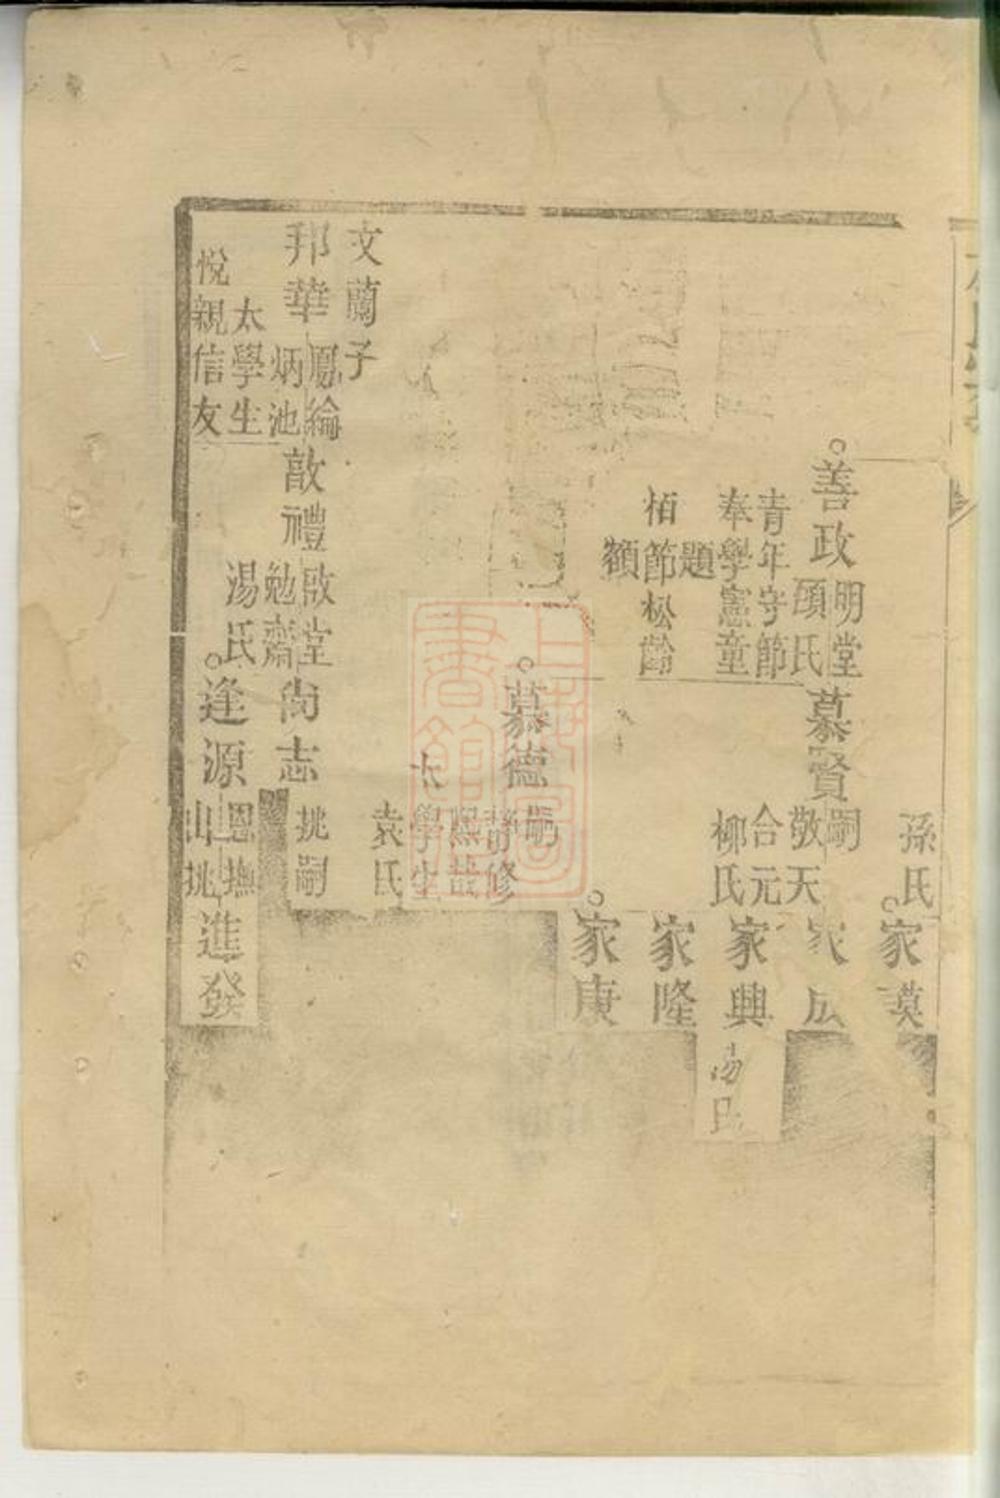 孫氏
家謨
善政
明堂
顧氏
青年守節
奉學憲童
題
栢節松齡
額
慕賢
嗣
敬天
合元
柳氏
家興
湯氏
家隆
家康
慕德
嗣
靜修
熙哉
太學生
袁氏
文蘭子
邦華
鳳綸
炳池
太學生
悅親信友
敬禮
啟堂
勉齋
湯氏
尚志
祧嗣
逢源
恩撫
山祧
進發
上海圖書館藏